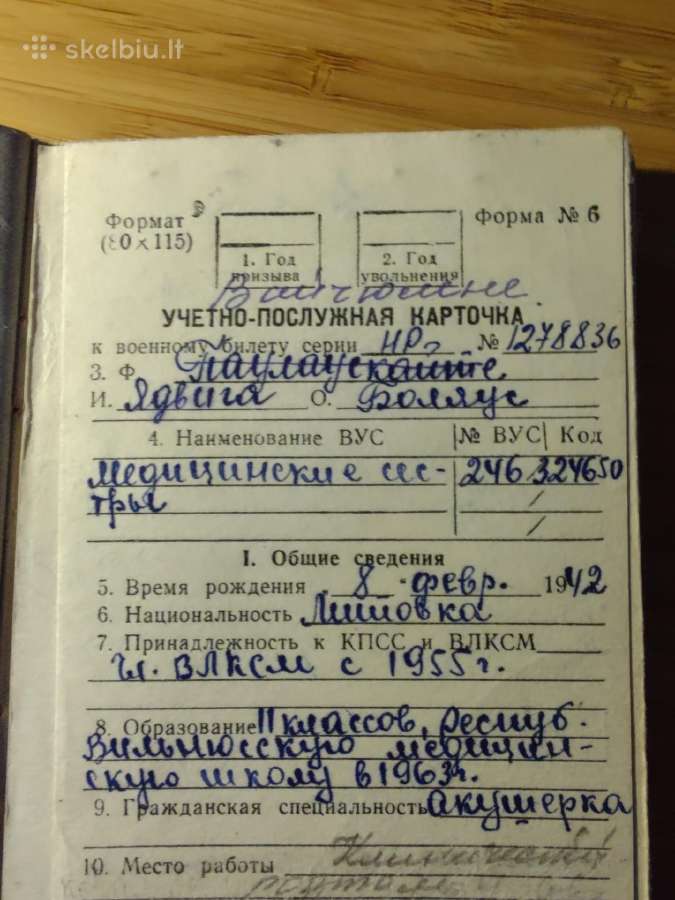 skelbiu.lt
Формат
(80×115)
Форма № 6
1. Год призыва
2. Год увольнения
Вайчюлене
УЧЕТНО-ПОСЛУЖНАЯ КАРТОЧКА
к военному билету серии НР № 1278836
3. Ф. Паулаускайте
И. Ядвига О. Боляус
4. Наименование ВУС № ВУС Код
медицинские сес- 246 324650
тры
I. Общие сведения
5. Время рождения 8 февр. 1942
6. Национальность Литовка
7. Принадлежность к КПСС и ВЛКСМ
чл. ВЛКСМ с 1955 г.
8. Образование 11 классов, Респуб.
Вильнюсскую медицин-
скую школу в 1963 г.
9. Гражданская специальность акушерка
10. Место работы Клинический